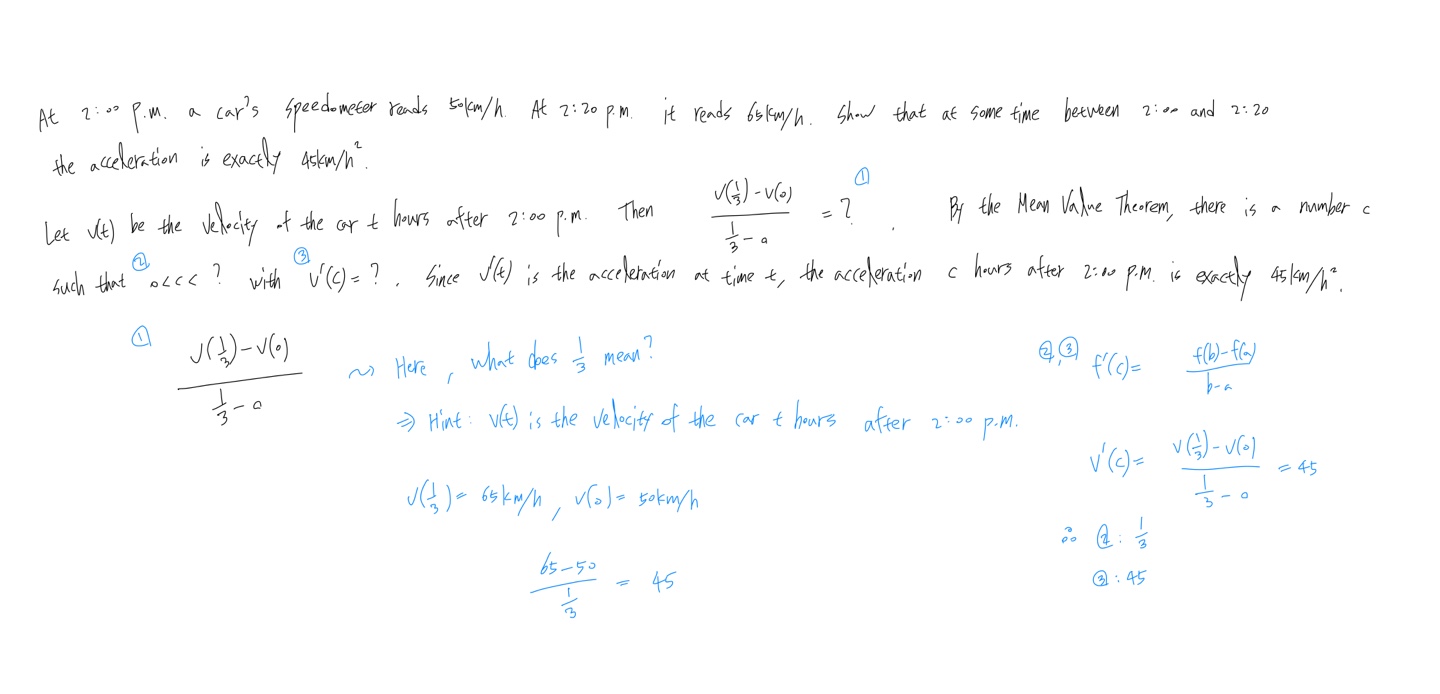 At 2:00 p.m. a car's speedometer reads 50km/h. At 2:20 p.m. it reads 65km/h. Show that at some time between 2:00 and 2:20
the acceleration is exactly 45km/h².
Let v(t) be the velocity of the car t hours after 2:00 p.m. Then (v(1/3)-v(0))/(1/3-0) = ? ① . By the Mean Value Theorem, there is a number c
such that ② 0<c< ? with ③ v'(c)= ? . Since v'(t) is the acceleration at time t, the acceleration c hours after 2:00 p.m. is exactly 45km/h².
① (v(1/3)-v(0))/(1/3-0) ~> Here, what does 1/3 mean?
⇒ Hint: v(t) is the velocity of the car t hours after 2:00 p.m.
v(1/3)= 65km/h, v(0)= 50km/h
(65-50)/(1/3) = 45
②,③ f'(c)= (f(b)-f(a))/(b-a)
v'(c)= (v(1/3)-v(0))/(1/3-0) = 45
∴ ②: 1/3
③: 45